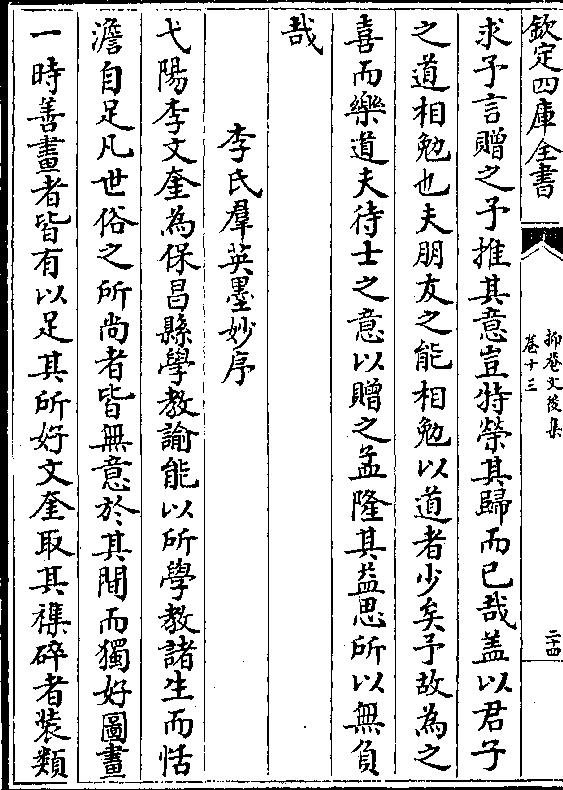 欽定四庫全書
抑菴文後集
卷十三
二十四
求予言贈之予推其意豈特榮其歸而已哉盖以君子
之道相勉也夫朋友之能相勉以道者少矣予故為之
喜而樂道夫待士之意以贈之孟隆其益思所以無負
哉
李氏羣英墨妙序
弋陽李文奎為保昌縣學教諭能以所學教諸生而恬
澹自足凡世俗之所尚者皆無意於其間而獨好圖畫
一時善畫者皆有以足其所好文奎取其襍碎者装類